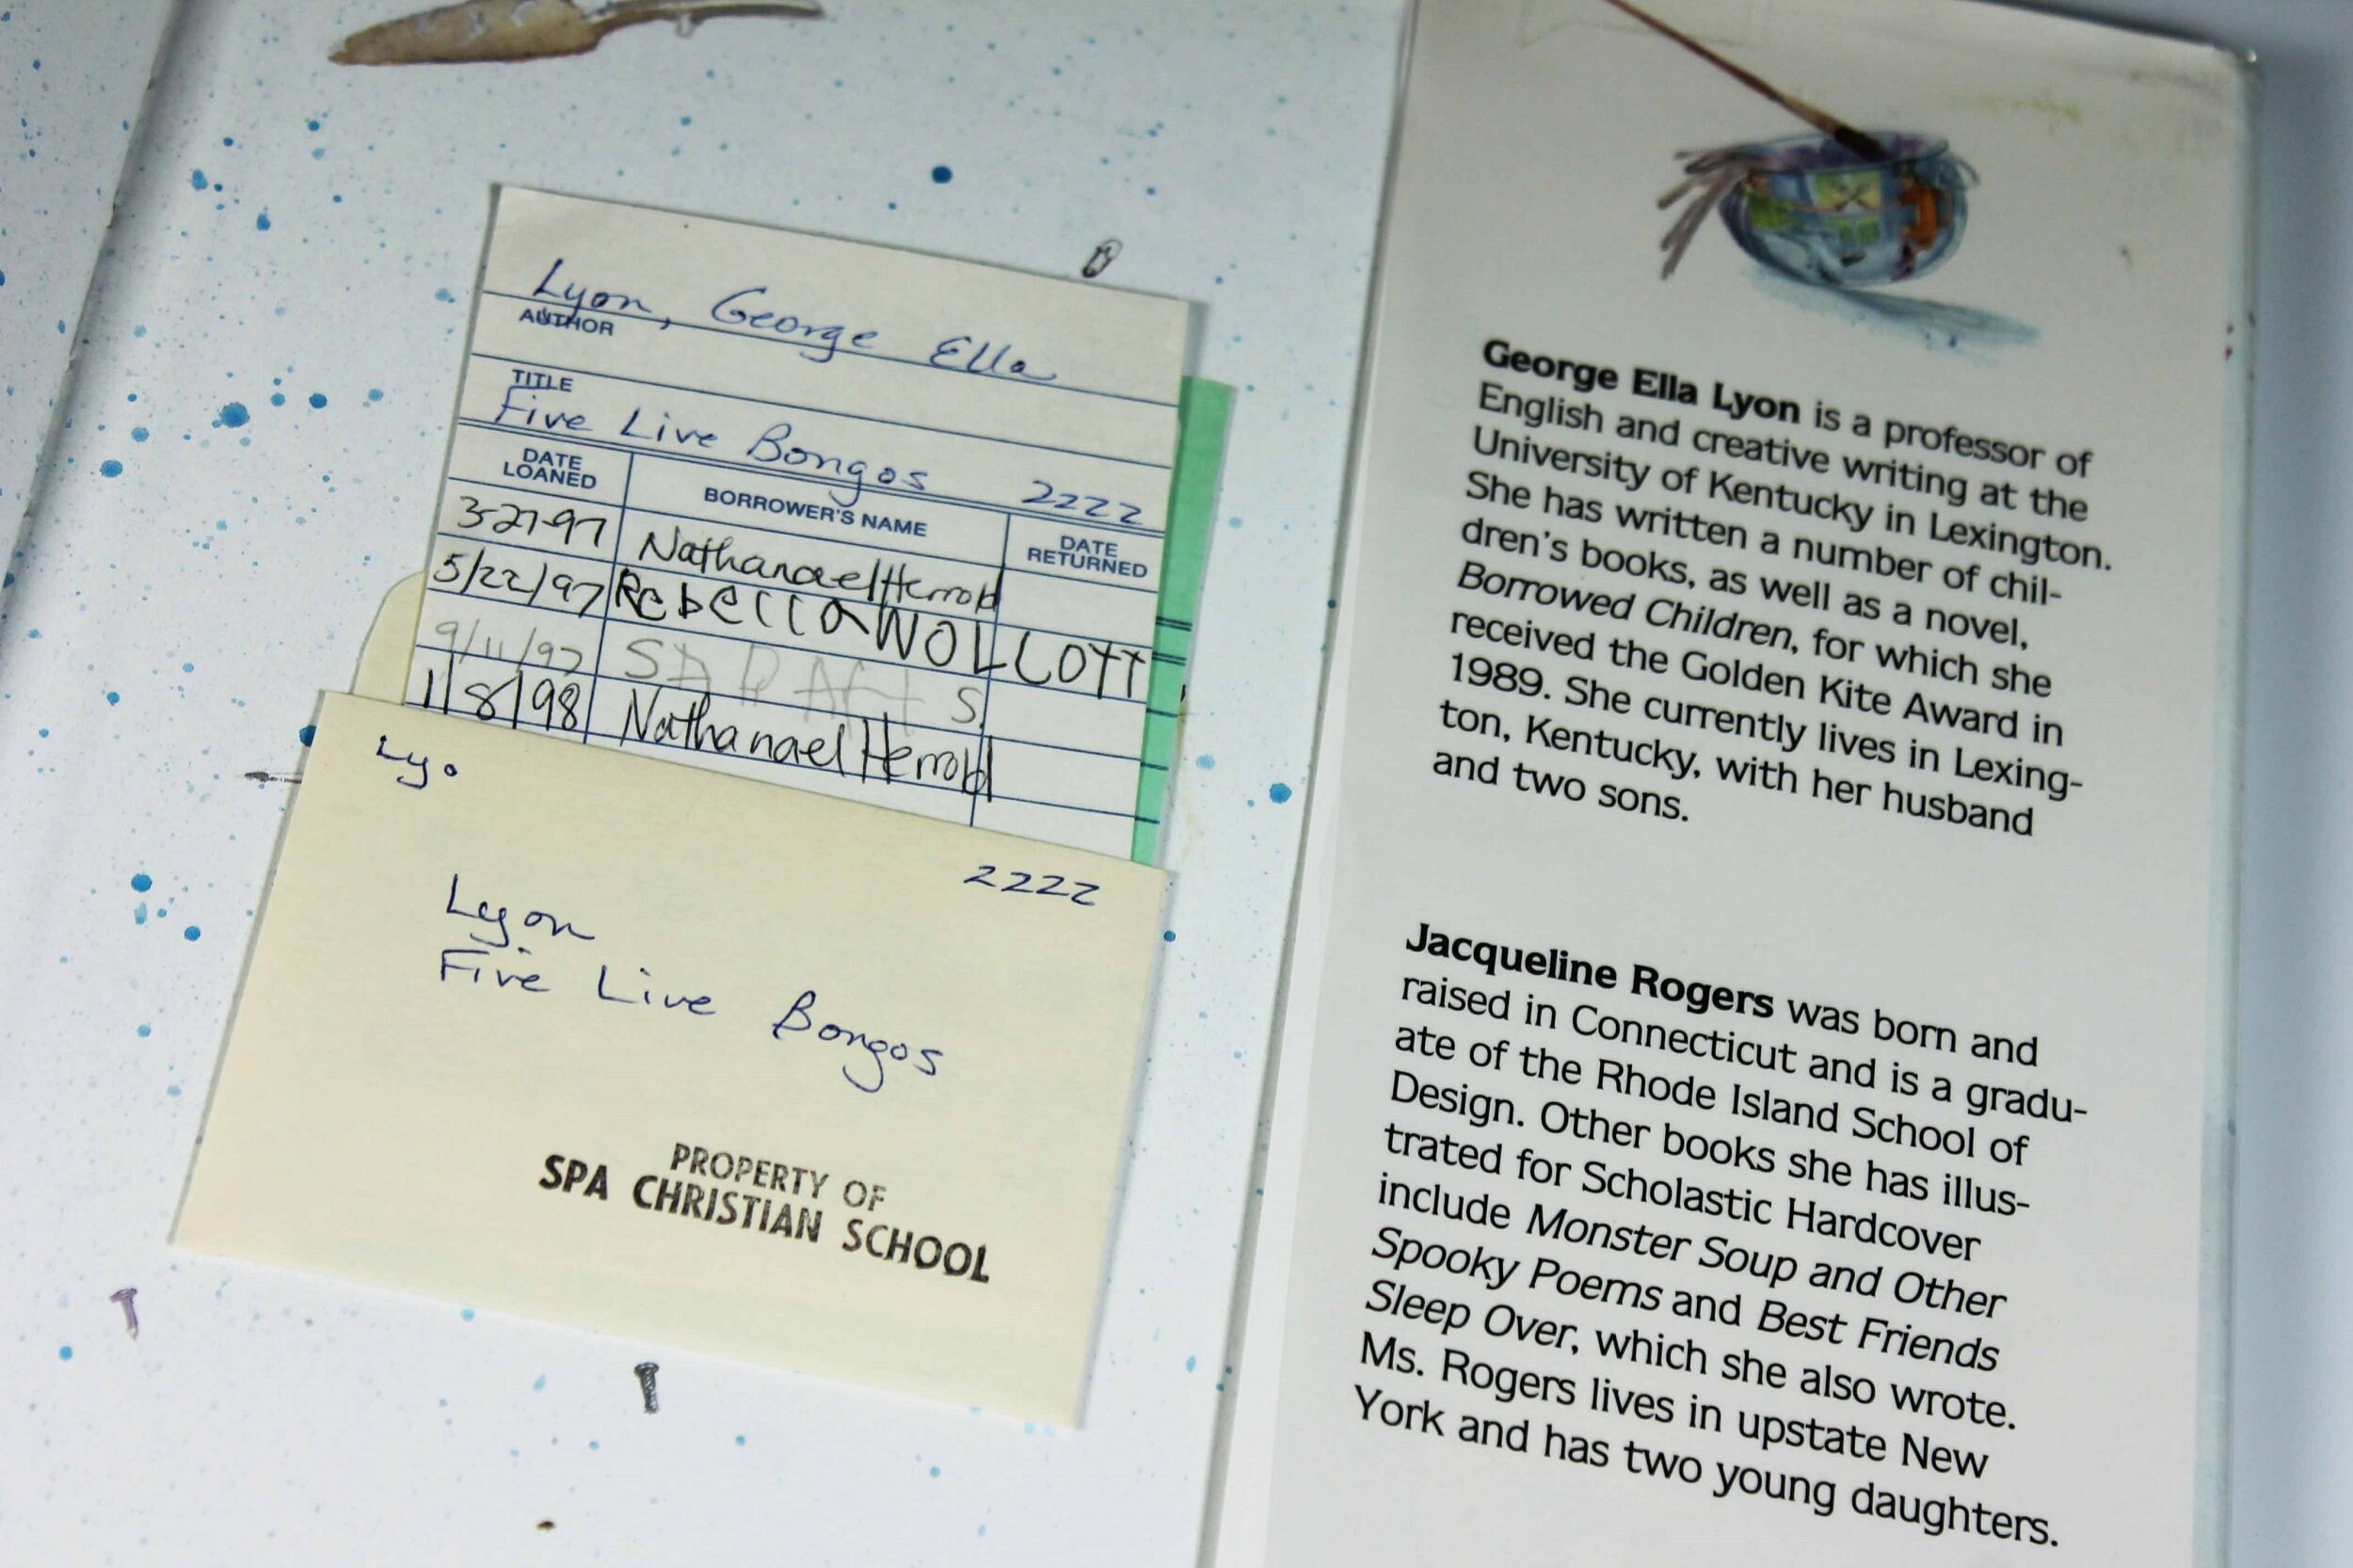 Lyon, George Ella
AUTHOR
TITLE
Five Live Bongos 2222
DATE LOANED BORROWER'S NAME DATE RETURNED
3-27-97 Nathanael Herrold
5/22/97 Rebecca WOLCOTT
9/11/97
1/8/98 Nathanael Herrold
Lyo
2222
Lyon
Five Live Bongos
PROPERTY OF
SPA CHRISTIAN SCHOOL
George Ella Lyon is a professor of
English and creative writing at the
University of Kentucky in Lexington.
She has written a number of chil-
dren's books, as well as a novel,
Borrowed Children, for which she
received the Golden Kite Award in
1989. She currently lives in Lexing-
ton, Kentucky, with her husband
and two sons.
Jacqueline Rogers was born and
raised in Connecticut and is a gradu-
ate of the Rhode Island School of
Design. Other books she has illus-
trated for Scholastic Hardcover
include Monster Soup and Other
Spooky Poems and Best Friends
Sleep Over, which she also wrote.
Ms. Rogers lives in upstate New
York and has two young daughters.